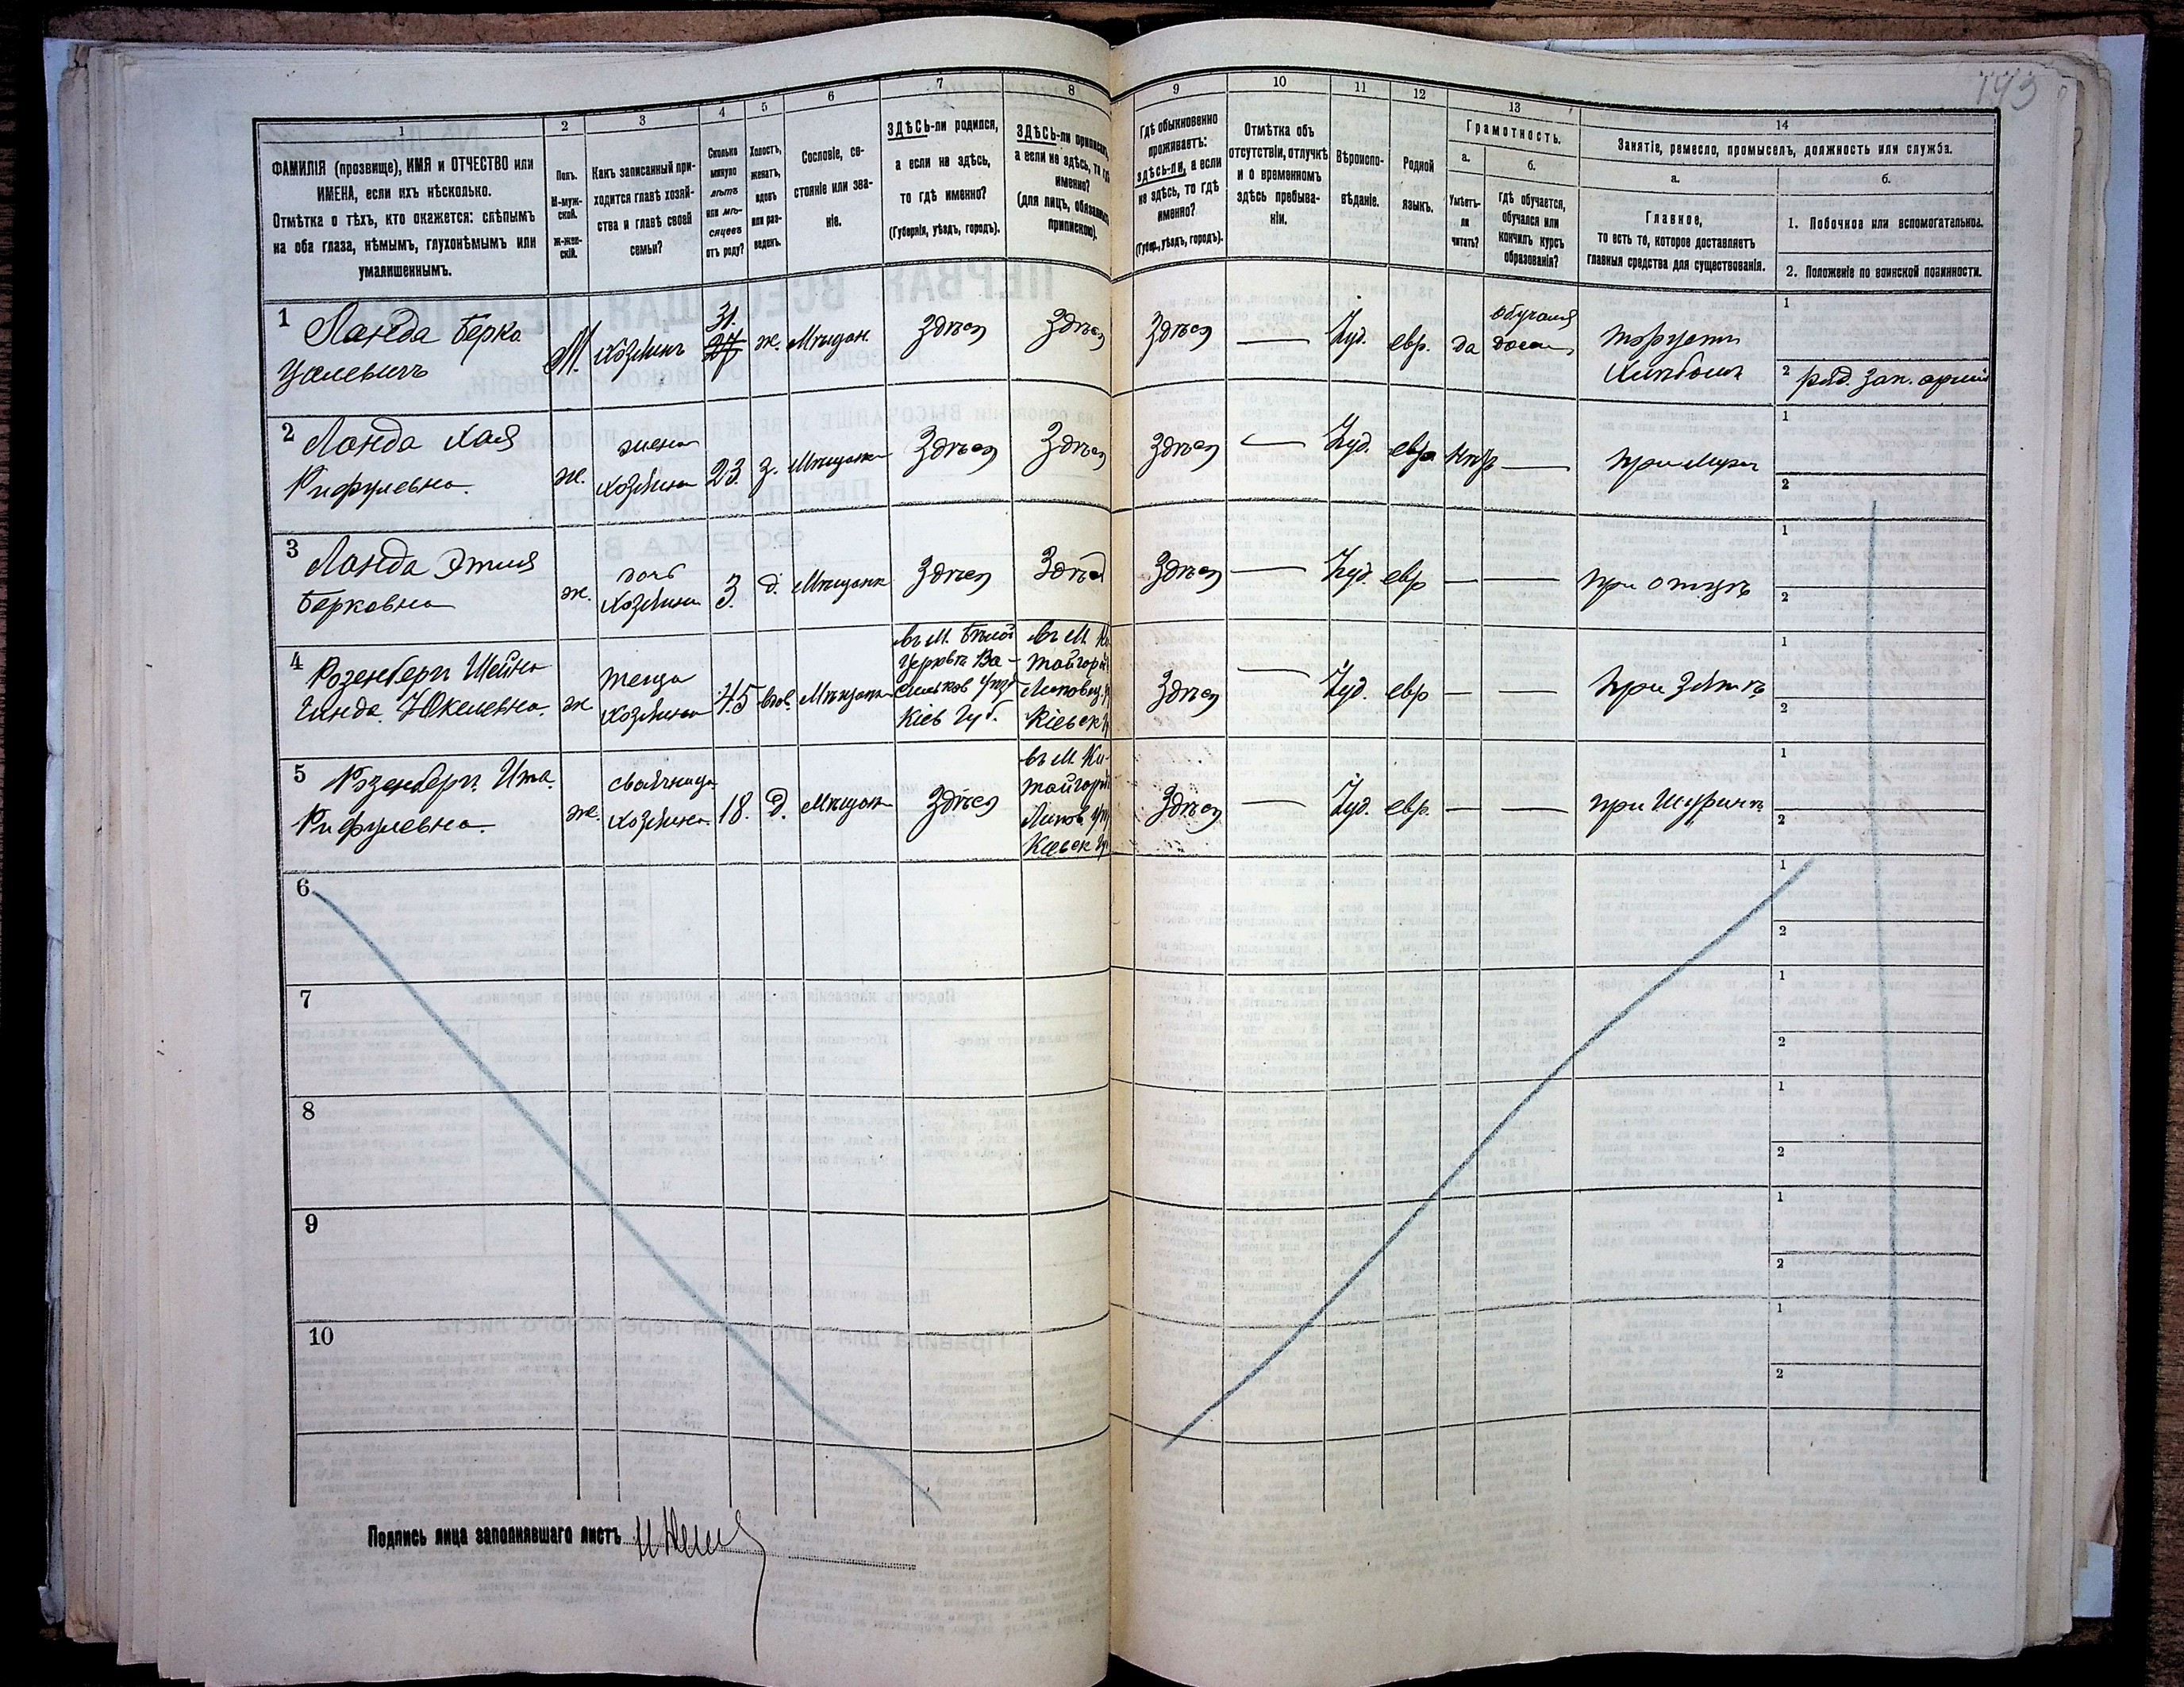 193
1
2
3
4
5
6
7
8
9
10
11
12
13
14
ФАМИЛІЯ (прозвище), ИМЯ и ОТЧЕСТВО или
ИМЕНА, если ихъ нѣсколько.
Отмѣтка о тѣхъ, кто окажется: слѣпымъ
на оба глаза, нѣмымъ, глухонѣмымъ или
умалишеннымъ.
Полъ.
М-муж-
ской.
Ж-жен-
скій.
Какъ записанный при-
ходится главѣ хозяй-
ства и главѣ своей
семьи?
Сколько
минуло
лѣтъ
или мѣ-
сяцевъ
отъ роду?
Холостъ,
женатъ,
вдовъ
или раз-
веденъ.
Сословіе, со-
стояніе или зва-
ніе.
ЗДѢСЬ-ли родился,
а если не здѣсь,
то гдѣ именно?
(Губернія, уѣздъ, городъ).
ЗДѢСЬ-ли приписанъ,
а если не здѣсь, то гдѣ
именно?
(для лицъ, обязанныхъ
припискою).
Гдѣ обыкновенно
проживаетъ:
здѣсь-ли, а если
не здѣсь, то гдѣ
именно?
(Губер., уѣздъ, городъ).
Отмѣтка объ
отсутствіи, отлучкѣ
и о временномъ
здѣсь пребыва-
ніи.
Вѣроиспо-
вѣданіе.
Родной
языкъ.
Грамотность.
а.
Умѣетъ-
ли
читать?
б.
гдѣ обучается,
обучался или
кончилъ курсъ
образованія?
Занятіе, ремесло, промыселъ, должность или служба.
а.
Главное,
то есть то, которое доставляетъ
главныя средства для существованія.
б.
1. Побочное или вспомогательное.
2. Положеніе по воинской повинности.
1 Ланда Берко
М. хозяинъ 31. 27 ж. Мѣщан. Здѣсь Здѣсь Здѣсь — Іуд. евр. да
обучался
дома
торгуетъ
хлѣбомъ
1
2 ряд. зап. арміи
2 Ланда Хая
Рифулевна.
ж.
жена
хозяина 23. з. Мѣщанка Здѣсь Здѣсь Здѣсь — Іуд. евр. нѣтъ —
1
2
3 Ланда Этля
Берковна
ж.
дочь
хозяина 3. д. Мѣщанка Здѣсь Здѣсь Здѣсь — Іуд. евр — — при отцѣ
1
2
4 Розенбергъ Шейна
Гинда Юкелевна.
ж
теща
хозяина 45 вдов. Мѣщанка
въ М. Бѣлой
Церковь Ва-
сильков уѣзд
Кіев Губ.
въ М. Ки
тайгород
Липовец. у
Кіевск Г
Здѣсь — Іуд. евр — — при зятѣ
1
2
5 Розенбергъ Ита
Рифулевна.
ж.
свояченица
хозяина. 18. д. Мѣщанк Здѣсь
въ М. Ки-
тайгород
Липов. уѣз
Кіевск Гу
Здѣсь — Іуд. евр. — — при Шуринѣ
1
2
6
1
2
7
1
2
8
1
2
9
1
2
10
1
2
Подпись лица заполнявшаго листъ